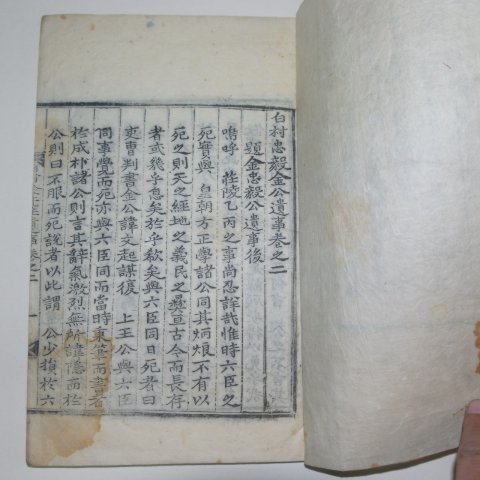 白村忠毅金公遺事卷之二
題金忠毅公遺事後
嗚呼 莊陵乙丙之事尚忍詳哉惟時六臣之
死實與 皇朝方正學諸公同其炳烺不有以
死之則天之經地之義民之彝亘古今而長存
者或幾乎息矣於乎欸矣與六臣同日死者曰
吏曹判書金公諱文起謀復 上王公與六臣
同事覺而死亦與六臣同而當時秉筆而書者
於成朴諸公則言其辭氣激烈無所諱隱而於
公則曰不服而死說者以此謂 公少損於六